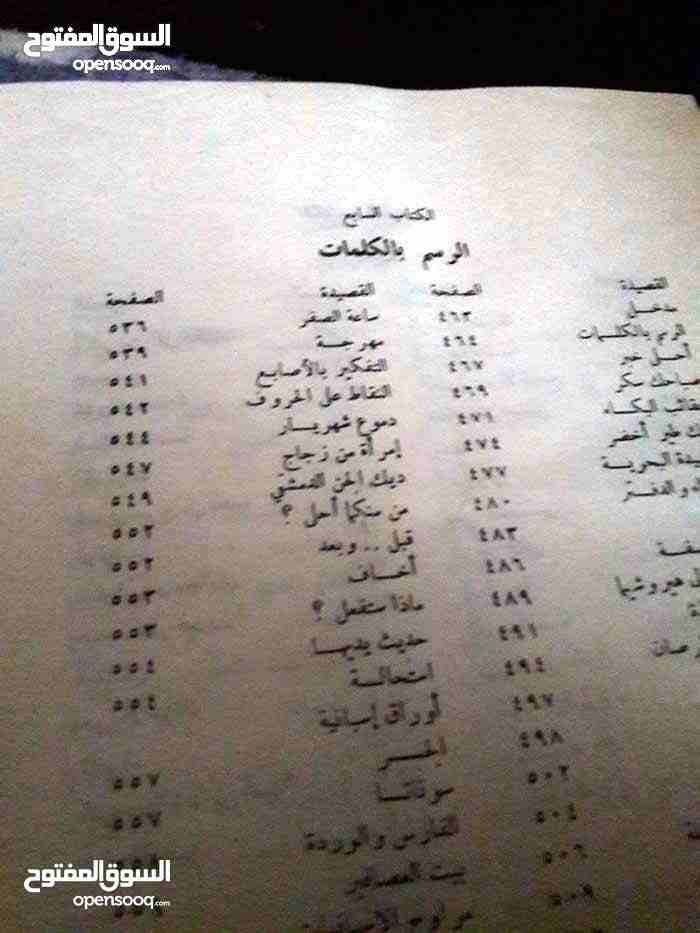 السوق المفتوح
opensooq.com
الكتاب السابع
الرسم بالكلمات
القصيدة الصفحة
مدخل ٤٦٣
الرسم بالكلمات ٤٦٤
أحلى خبر ٤٦٧
صباحك سكر ٤٦٩
البكاء ٤٧١
طير أخضر ٤٧٤
البحرية ٤٧٧
والدفتر ٤٨٠
٤٨٣
٤٨٦
هيروشيما ٤٨٩
٤٩١
٤٩٤
٤٩٧
٤٩٨
٥٠٢
٥٠٤
٥٠٦
٥٠٩
القصيدة الصفحة
ساعة الصفر ٥٣٦
مهرجة ٥٣٩
التفكير بالأصابع ٥٤١
النقاط على الحروف ٥٤٢
دموع شهريار ٥٤٤
إمرأة من زجاج ٥٤٧
ديك الجن الدمشقي ٥٤٩
من منكما أحلى ؟ ٥٥٢
قبل .. وبعد ٥٥٢
أخاف ٥٥٣
ماذا ستفعل ؟ ٥٥٣
حديث يديها ٥٥٤
استحالة ٥٥٤
أوراق إسبانية
الجسر ٥٥٧
سوناتا ٥٥٧
الفارس والوردة ٥٥٨
بيت العصافير
مراوح
السوق المفتوح
opensooq.com